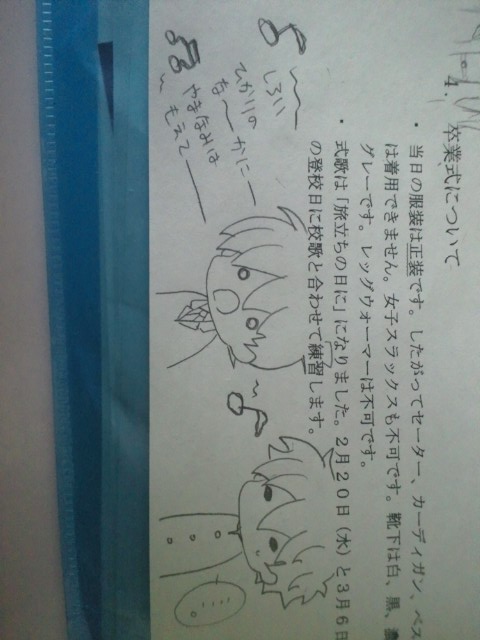 4. 卒業式について
・ 当日の服装は正装です。したがってセーター、カーディガン、ベス
は着用できません。女子スラックスも不可です。靴下は白、黒、
グレーです。レッグウォーマーは不可です。
・ 式歌は「旅立ちの日に」になりました。2月20日(水)と3月6日
の登校日に校歌と合わせて練習します。
しろい
ひかりの
な〜かにー
やまなみは
もえてー